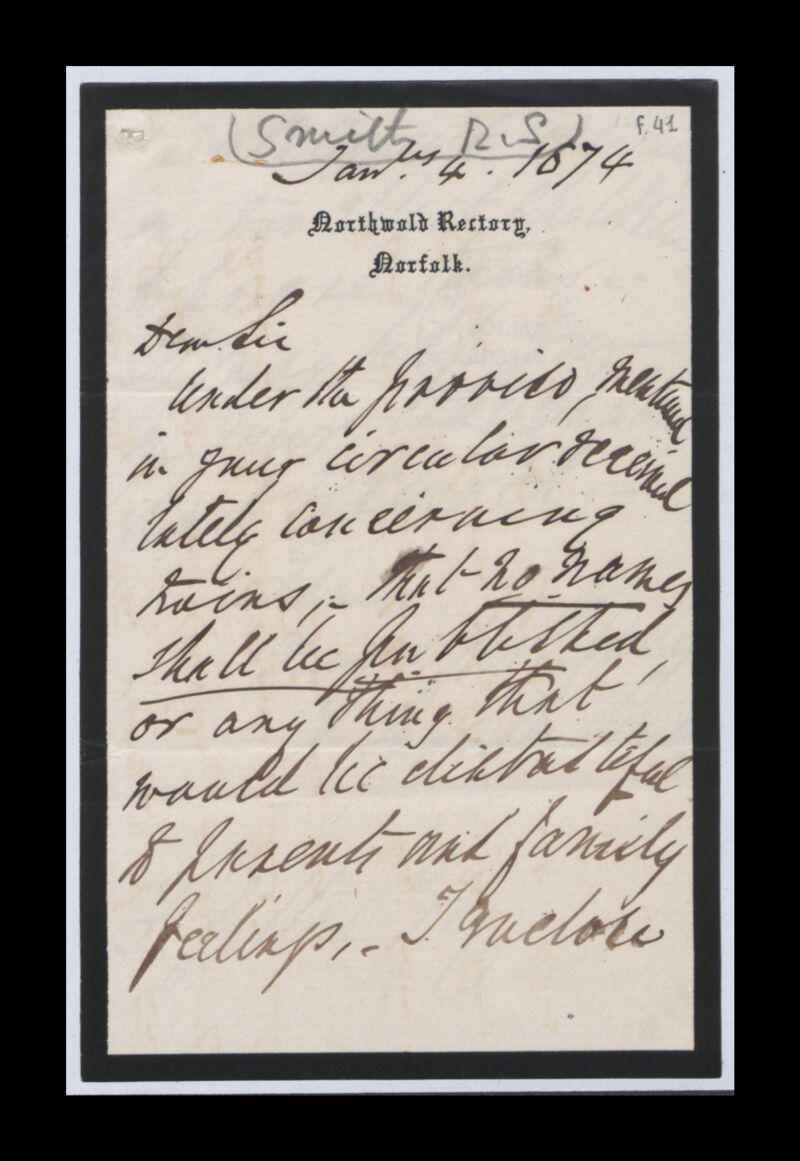 (Smith R.S)
f.41
Jan.ry 4. 1874
Northwold Rectory,
Norfolk.
Dear Sir
Under the proviso, mentioned
in your circular received
lately concerning
twins,- that no names
shall be published,
or any thing that
would be distasteful
to parents and family
feelings,- I enclose